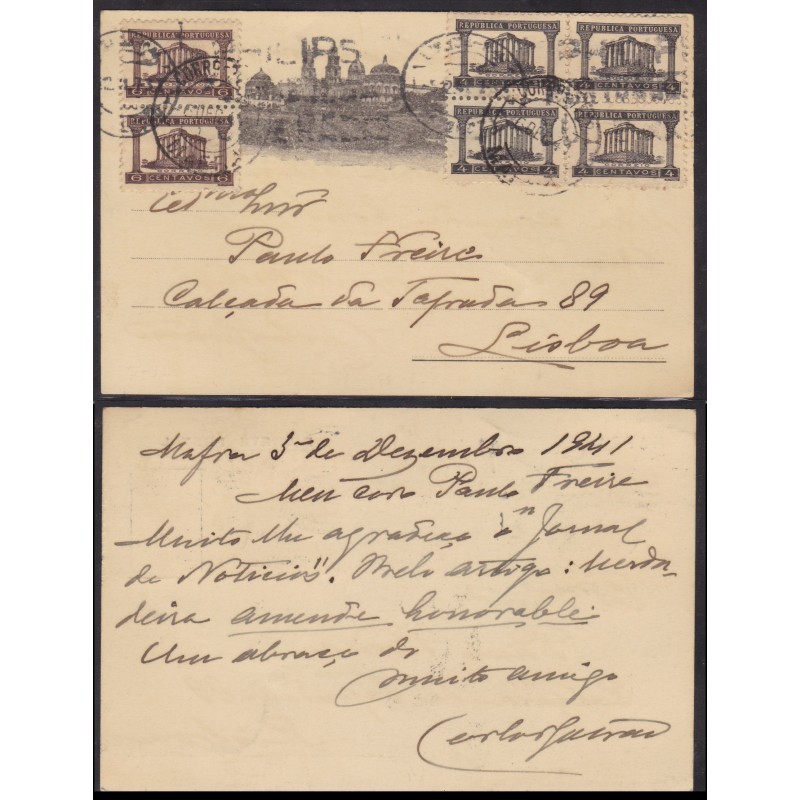 REPUBLICA PORTUGUESA
6 CENTAVOS 6
REPUBLICA PORTUGUESA
CORREIO
6 CENTAVOS 6
REPUBLICA PORTUGUESA
4 4
REPUBLICA PORTUGUESA
4 CENTAVOS 4
REPUBLICA PORTUGUESA
CORREIO
4 CENTAVOS 4
REPUBLICA PORTUGUESA
CORREIO
4 CENTAVOS 4
Paulo Freire
Calçada da 89
Lisboa
Mafra 3 de Dezembro 1941
Meu caro Paulo Freire
Muito lhe agradeço o "Jornal
de Noticias". Belo artigo: Verda-
deira amende honorable.
Um abraço do
muito amigo
Carlos